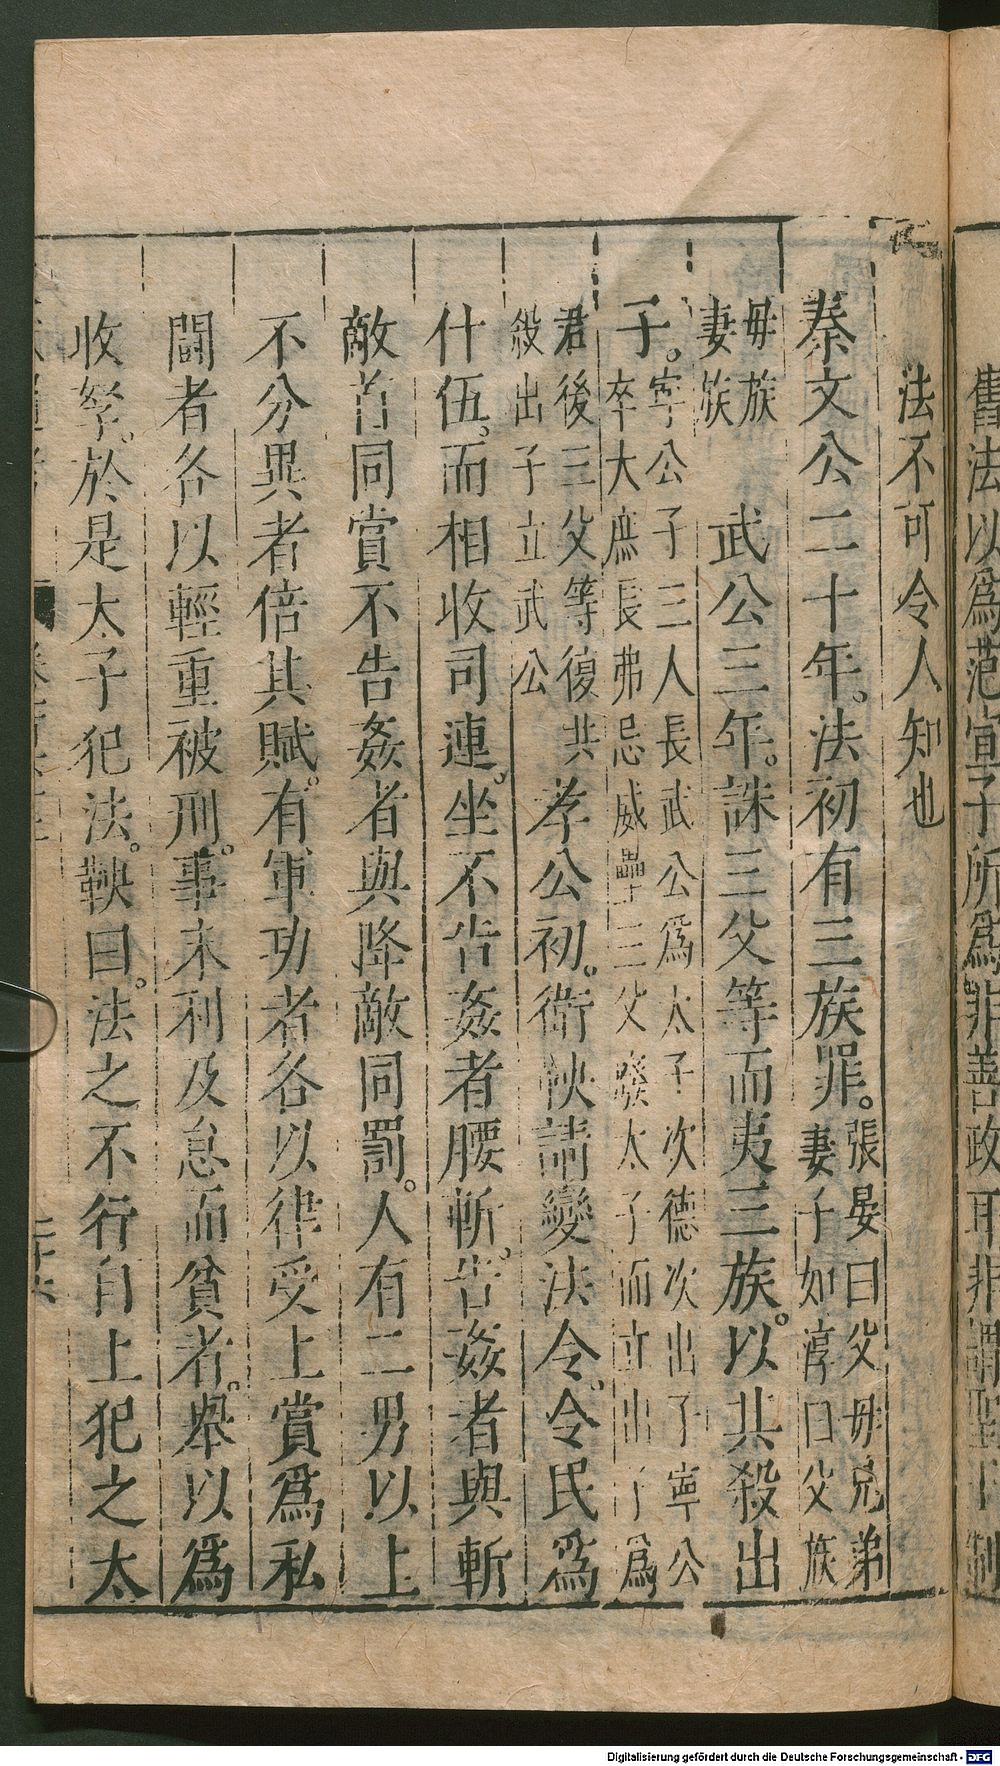 舊法以爲范宣子所爲非善政耳非謂聖王制
法不可令人知也
秦文公二十年。法初有三族罪。張晏曰父母兄弟妻子如淳曰父族
母族妻族　武公三年。誅三父等而夷三族。以其殺出
子。寧公子三人長武公爲太子次德次出子寧公卒大庶長弗忌威壘三父廢太子而立出子爲
君後三父等復共殺出子立武公　孝公初。衛鞅請變法令。令民爲
什伍。而相收司連。坐不告姦者腰斬。告姦者與斬
敵首同賞不告姦者與降敵同罰。人有二男以上
不分異者倍其賦。有軍功者各以律受上賞爲私
鬬者各以輕重被刑。事末利及怠而貧者。舉以爲
收孥。於是太子犯法。鞅曰。法之不行自上犯之太
Digitalisierung gefördert durch die Deutsche Forschungsgemeinschaft - DFG